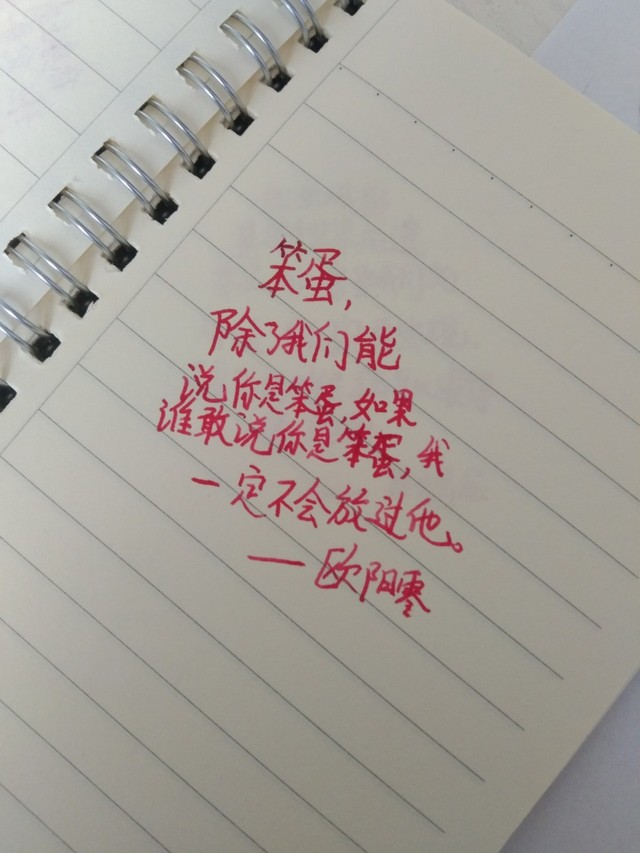 笨蛋,
除了我们能
说你是笨蛋,如果
谁敢说你是笨蛋,我
一定不会放过他。
——欧阳零